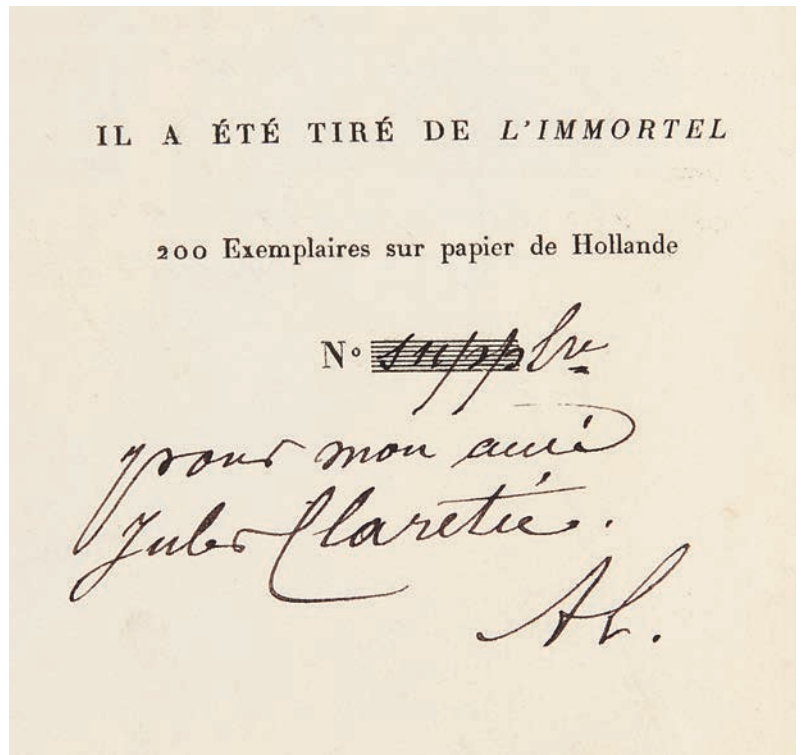 IL A ÉTÉ TIRÉ DE L'IMMORTEL
200 Exemplaires sur papier de Hollande
N° supplre
pour mon ami
Jules Claretie.
AL.